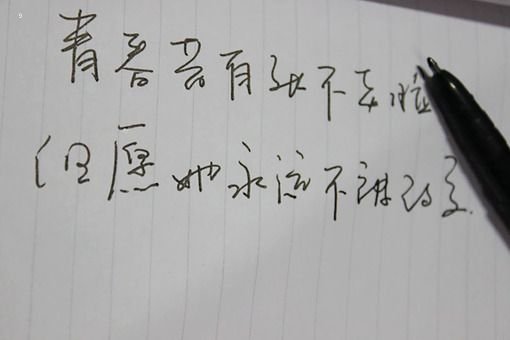 青春若有张不老脸
但愿她永远不被改变.